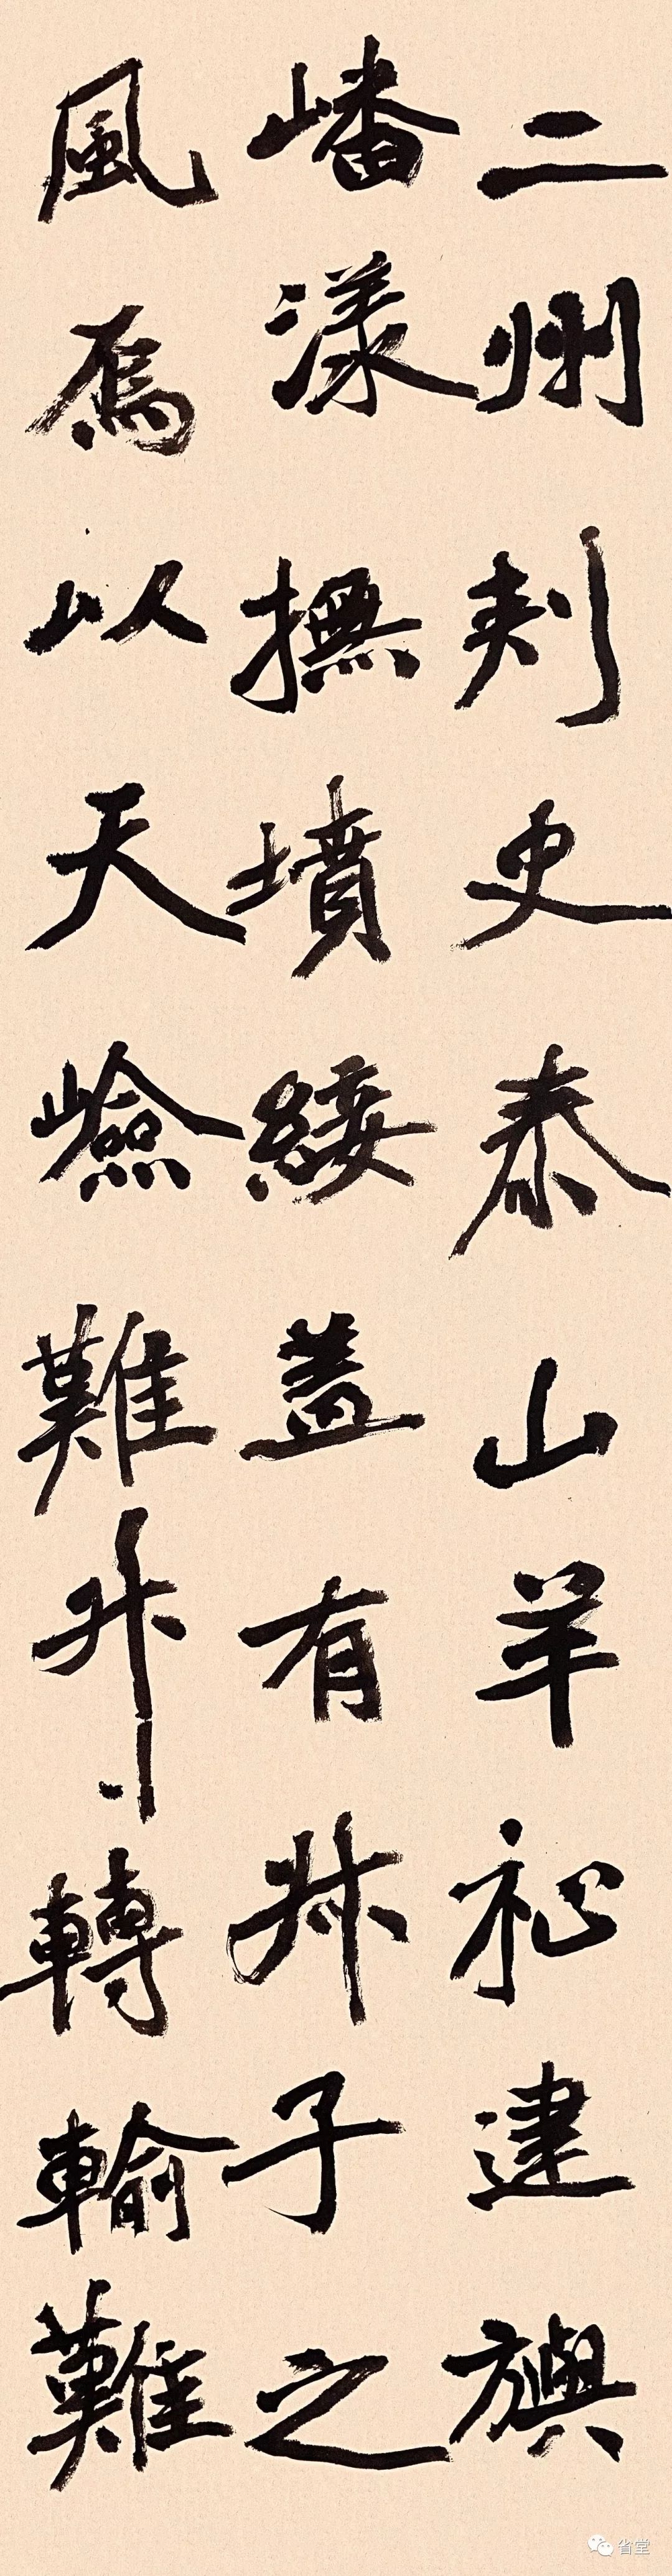 二州刾史泰山羊祉建旟
嶓漾撫境綏盖有叔子之
風焉以天嶮難升轉輸難
省堂